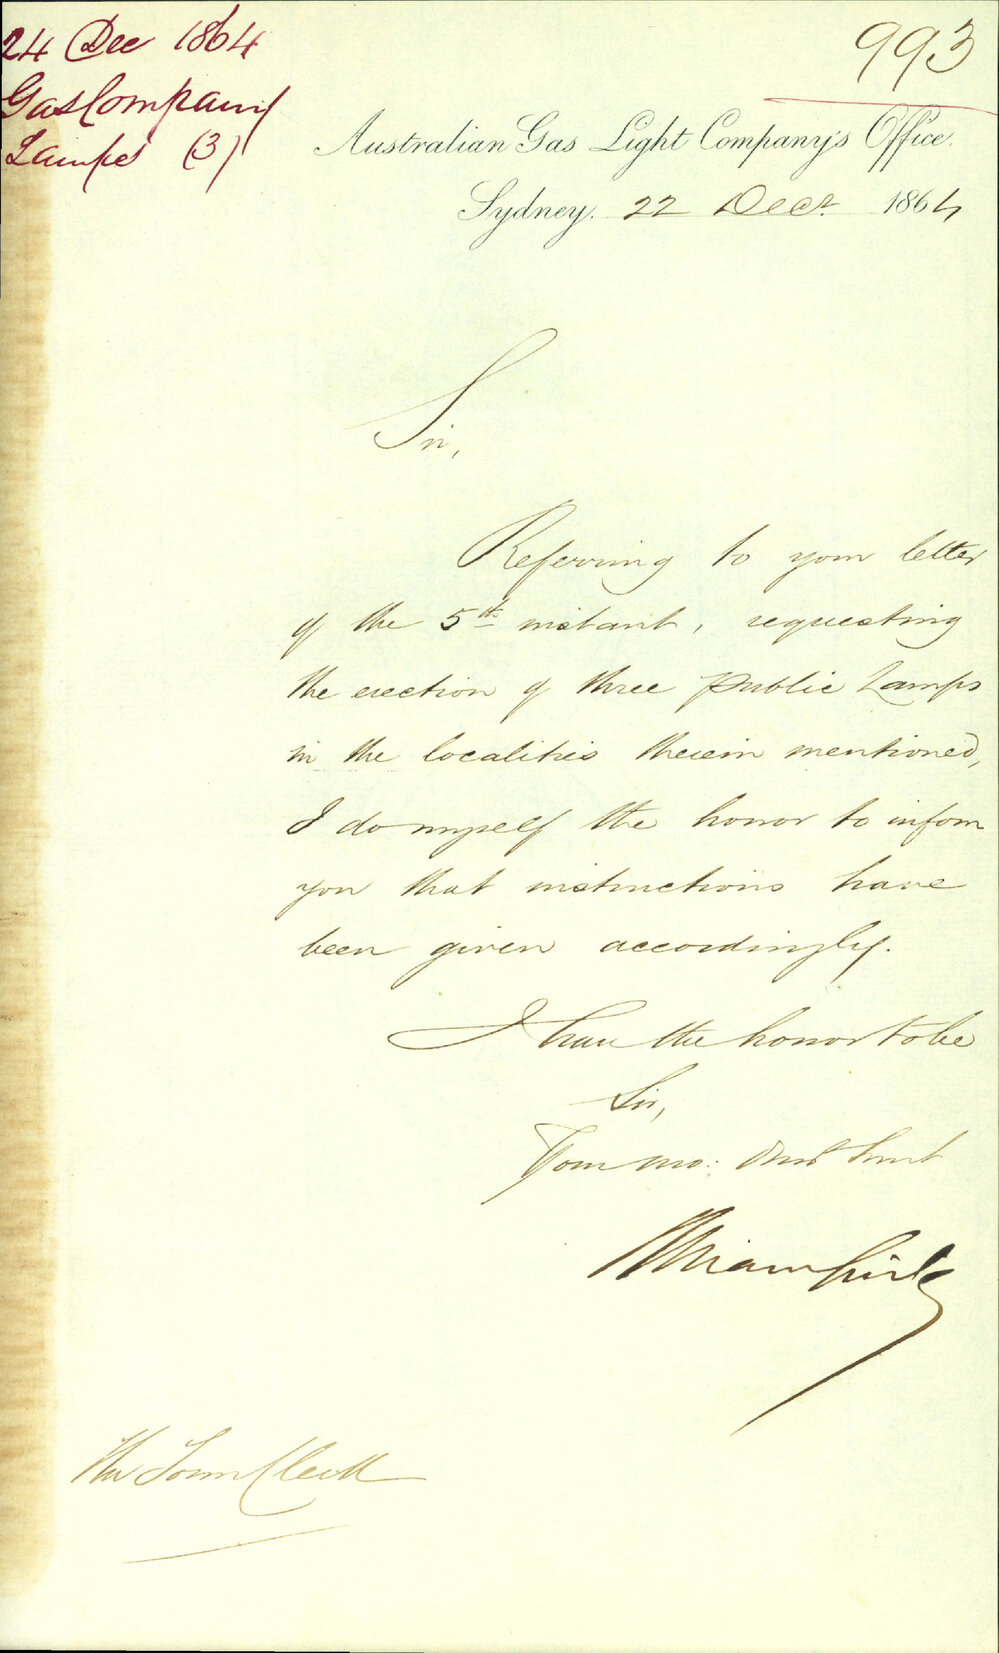 24 Dec 1864
Gas Company
Lamps (3)
993
Australian Gas Light Company's Office.
Sydney. 22 Decr. 1864
Sir,
Referring to your letter
of the 5th instant, requesting
the erection of three public Lamps
in the localities therein mentioned,
I do myself the honor to inform
you that instructions have
been given accordingly.
I have the honor to be
Sir,
Your mo: Obdt Servt
The Town Clerk